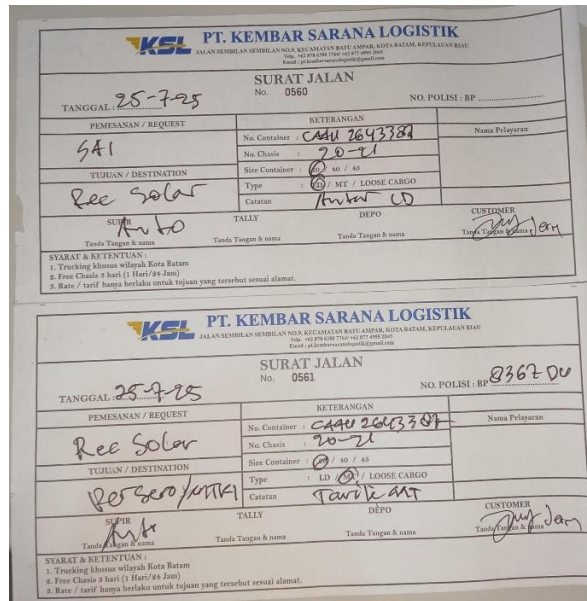 KSL PT. KEMBAR SARANA LOGISTIK
JALAN SEMBILAN SEMBILAN NO.9, KECAMATAN BATU AMPAR, KOTA BATAM, KEPULAUAN RIAU
SURAT JALAN
No. 0560
TANGGAL : 25-7-25
NO. POLISI : BP
PEMESANAN / REQUEST
KETERANGAN
Nama Pelayaran
SAI
No. Container : CAAU 2643387
No. Chasis : 20-21
TUJUAN / DESTINATION
Size Container : 20 / 40 / 45
Rec Solar
Type : LD / MT / LOOSE CARGO
Catatan Antar LD
SUPIR TALLY DEPO CUSTOMER
Anto
Tanda Tangan & nama Tanda Tangan & nama Tanda Tangan & nama Tanda Tangan & nama
SYARAT & KETENTUAN :
1. Trucking khusus wilayah Kota Batam
2. Free Chasis 3 hari (1 Hari/24 Jam)
3. Rate / tarif hanya berlaku untuk tujuan yang tersebut sesuai alamat.
KSL PT. KEMBAR SARANA LOGISTIK
JALAN SEMBILAN SEMBILAN NO.9, KECAMATAN BATU AMPAR, KOTA BATAM, KEPULAUAN RIAU
SURAT JALAN
No. 0561
TANGGAL : 25-7-25
NO. POLISI : BP 8367 DU
PEMESANAN / REQUEST
KETERANGAN
Nama Pelayaran
Rec Solar
No. Container : CAAU 2643387
No. Chasis : 20-21
TUJUAN / DESTINATION
Size Container : 20 / 40 / 45
Type : LD / MT / LOOSE CARGO
Persero
Catatan Tarik MT
SUPIR TALLY DEPO CUSTOMER
Anto
Tanda Tangan & nama Tanda Tangan & nama Tanda Tangan & nama Tanda Tangan & nama
SYARAT & KETENTUAN :
1. Trucking khusus wilayah Kota Batam
2. Free Chasis 3 hari (1 Hari/24 Jam)
3. Rate / tarif hanya berlaku untuk tujuan yang tersebut sesuai alamat.